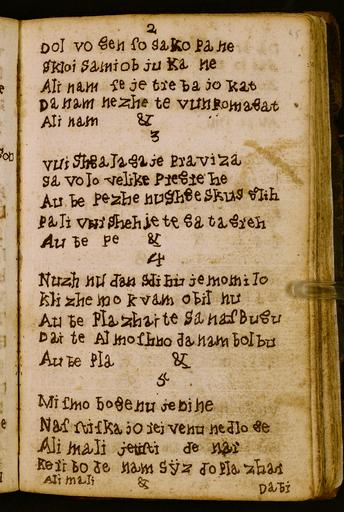 2
Dol vo gen so sako pa ne
skloi sami ob ju ka ne
Ali nam se je tre ba jo kat
Da nam nezhe te vun pomagat
Ali nam &
3
vun shga la ga je praviza
sa volo velike Pregrehe
Au be pezhe nu shge skus glih
pa li vun sheh je te ga ta greh
Au be pe &
4
Nuzh nu dan sdihu je mo mi lo
kli zhe mo k vam obil nu
Au be pla zhai te sa nas Bugu
Dai te Al mo shno da nam bol bu
Au be pla &
5
Mi smo boge nu je bi he
Nas ka jo nedlo ge
Ali ma li de nar
ke ii bo de nam syz do pla zhal
Ali mali &
Da bi